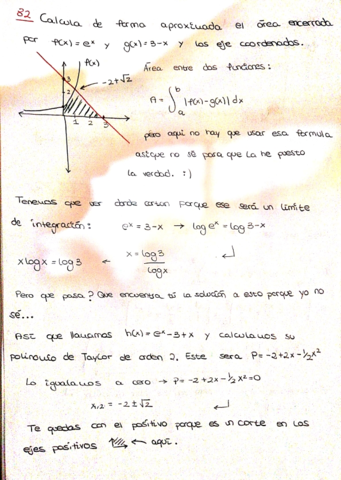 82 Calcula de forma aproximada el área encerrada
por f(x) = eˣ y g(x) = 3-x y los eje coordenados.
f(x)
-2+√2
3
2
1 2 3
Área entre dos funciones:
A = ∫ₐᵇ |f(x)-g(x)| dx
pero aquí no hay que usar esa formula
asique no sé para que la he puesto
la verdad. :)
Tenemos que ver donde cortan porque ese será un límite
de integración: eˣ = 3-x → log eˣ = log 3-x
x log x = log 3 ← x = log 3 / log x ↵
Pero que pasa? Que encuentra tú la solución a esto porque yo no
sé...
Así que llamamos h(x) = eˣ-3+x y calculamos su
polinomio de Taylor de orden 2. Este será P = -2+2x-½x²
Lo igualamos a cero → P = -2+2x-½x² = 0
x₁,₂ = -2 ± √2 ↵
Te quedas con el positivo porque es un corte en los
ejes positivos ← aquí.